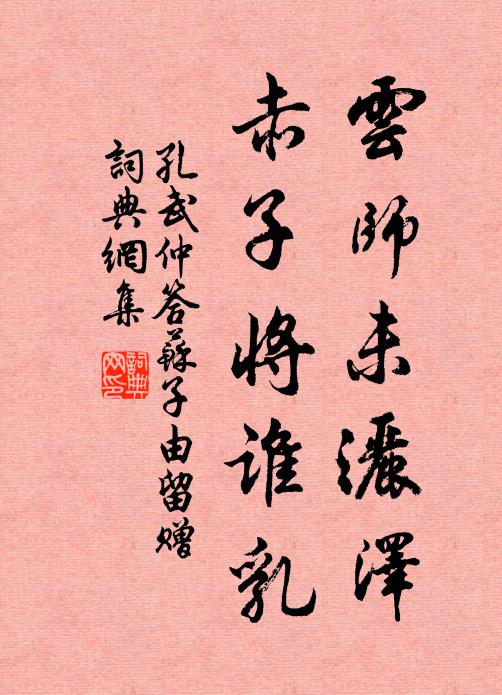 雲師未灑澤
赤子將誰乳
孔武仲答蘇子由留贈
詞典網集
詞典網印